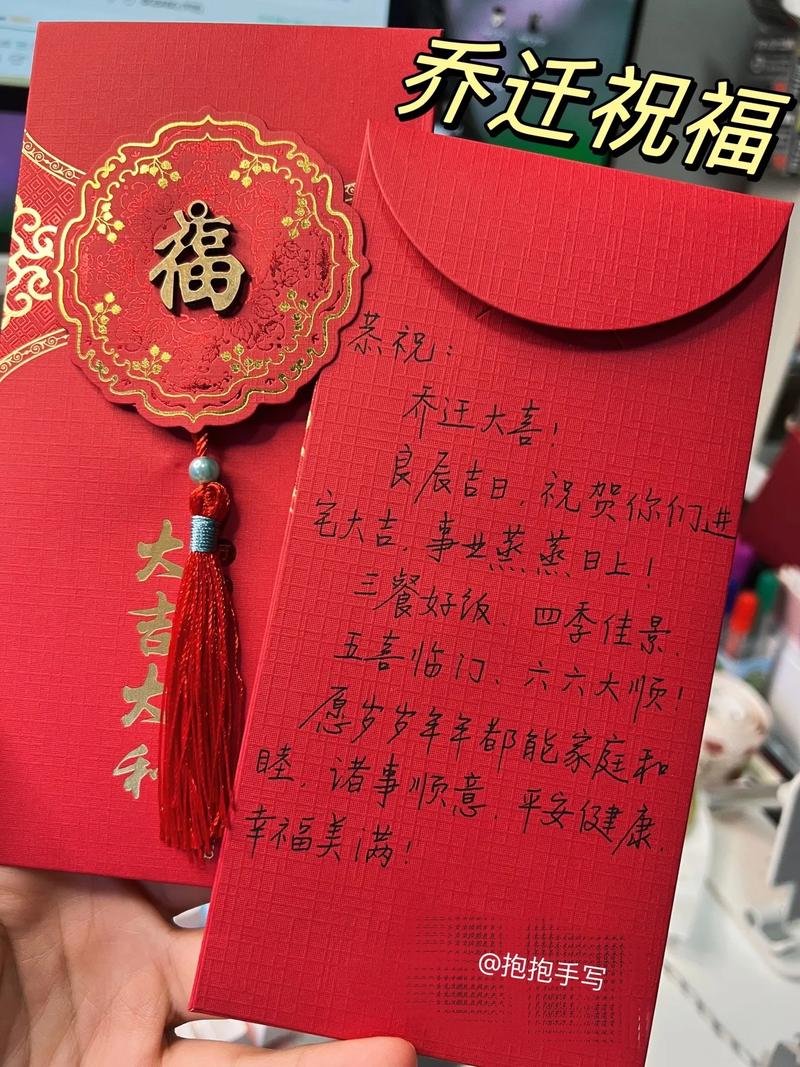 乔迁祝福
福
大吉大利
恭祝：
乔迁大喜！
良辰吉日，祝贺你们进
宅大吉，事业蒸蒸日上！
三餐好饭、四季佳景、
五喜临门、六六大顺！
愿岁岁年年都能家庭和
睦，诸事顺意，平安健康，
幸福美满！
@抱抱手写